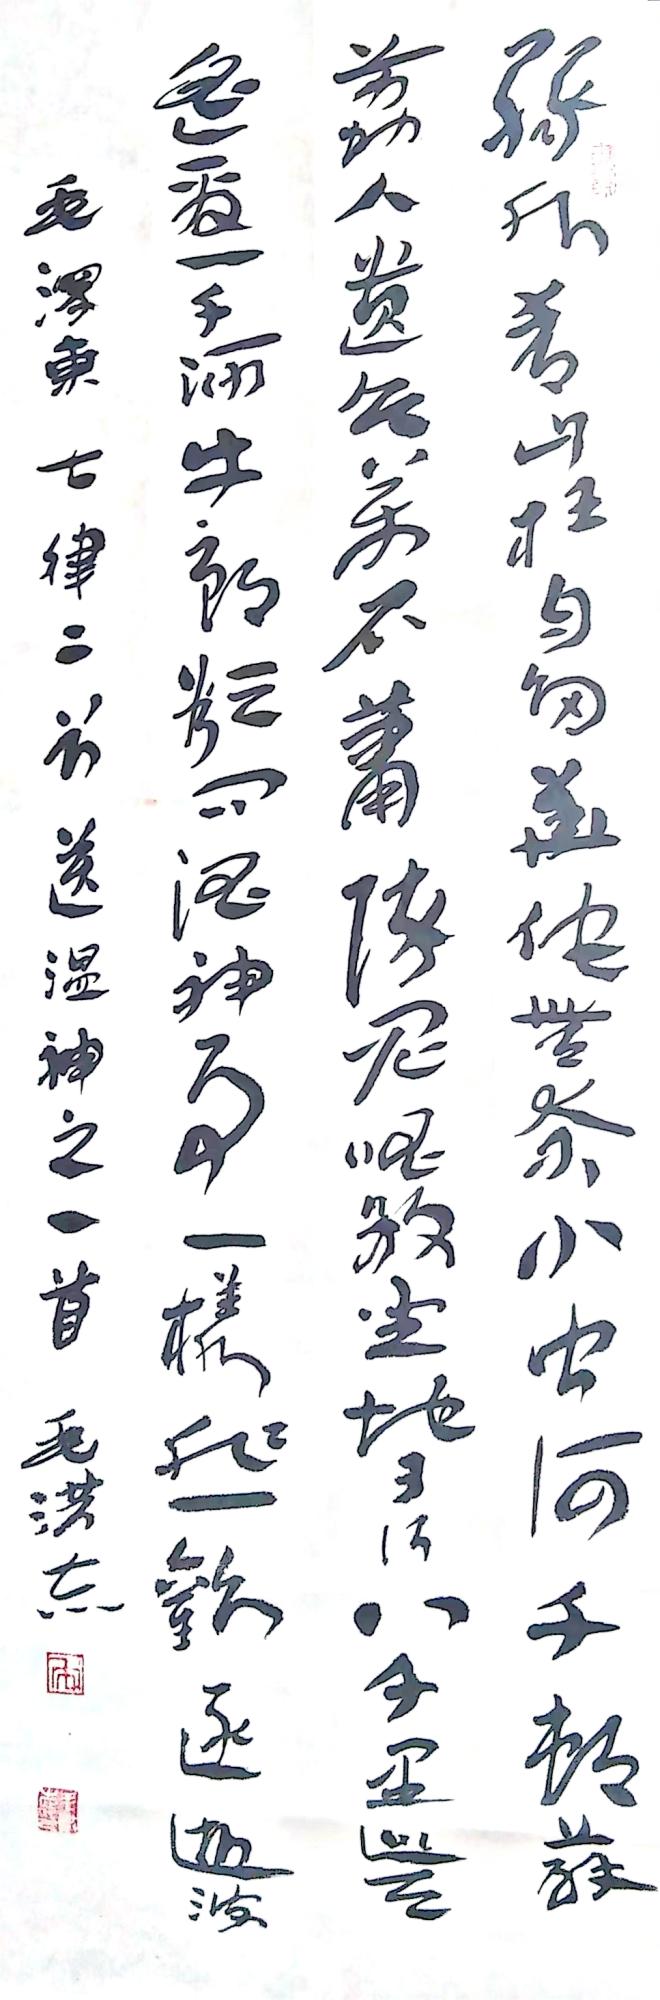 緑水青山枉自多華佗無奈小虫何千村薜
荔人遺矢萬户蕭疏鬼唱歌坐地日行八万里巡天
遥看一千河牛郎欲问瘟神事一樣悲歡逐逝波
毛澤東七律二首送温神之一首 毛洪志